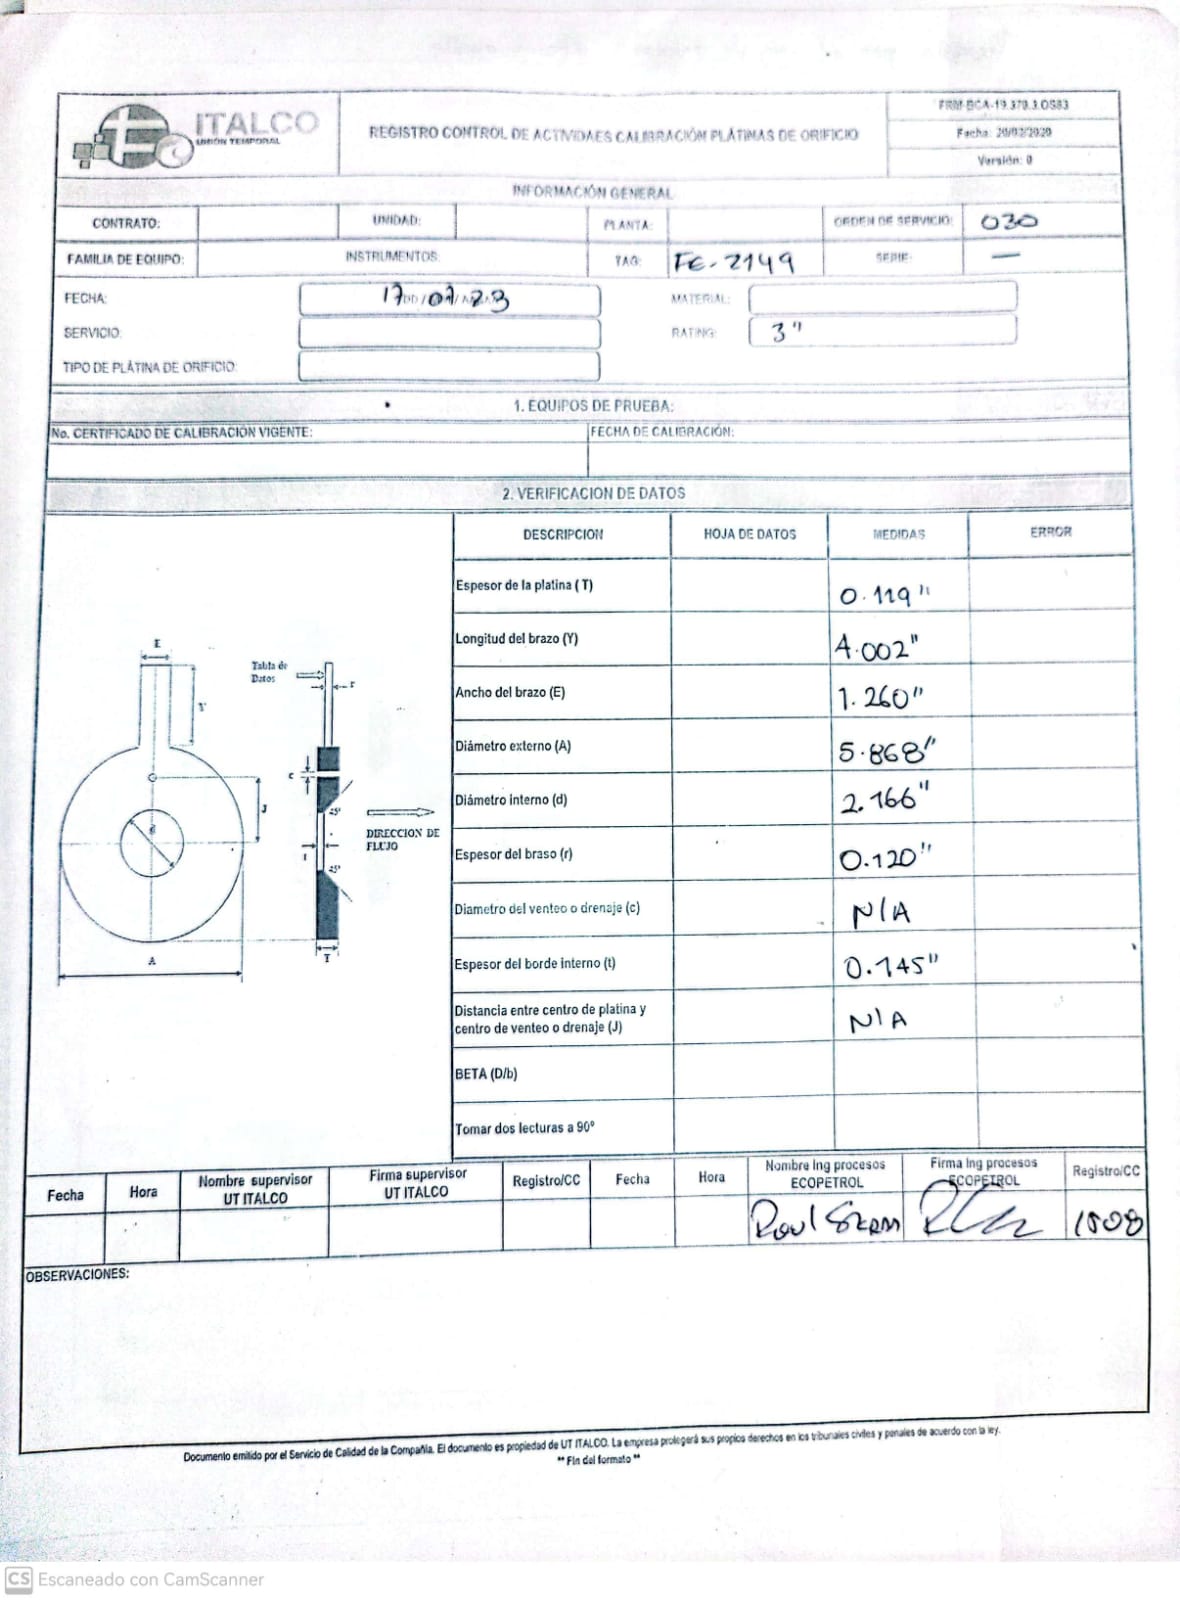 ITALCO
UNIÓN TEMPORAL
REGISTRO CONTROL DE ACTIVIDAES CALIBRACIÓN PLÁTINAS DE ORIFICIO
FRM-BCA-19.370.3.0S83
Fecha: 20/02/2020
Versión: 0
INFORMACIÓN GENERAL
CONTRATO: UNIDAD: PLANTA: ORDEN DE SERVICIO: 030
FAMILIA DE EQUIPO: INSTRUMENTOS TAG: FE-2149 SERIE: —
FECHA: 17/07/23 MATERIAL:
SERVICIO: RATING: 3"
TIPO DE PLÁTINA DE ORIFICIO:
1. EQUIPOS DE PRUEBA:
No. CERTIFICADO DE CALIBRACIÓN VIGENTE: FECHA DE CALIBRACIÓN:
2. VERIFICACION DE DATOS
DESCRIPCION HOJA DE DATOS MEDIDAS ERROR
Espesor de la platina ( T) 0.119"
Longitud del brazo (Y) 4.002"
Ancho del brazo (E) 1.260"
Diámetro externo (A) 5.868"
Diámetro interno (d) 2.166"
Espesor del braso (r) 0.120"
Diametro del venteo o drenaje (c) N/A
Espesor del borde interno (t) 0.145"
Distancia entre centro de platina y
centro de venteo o drenaje (J) N/A
BETA (D/b)
Tomar dos lecturas a 90º
E
Y
J
A
Tabla de
Datos
r
c
45°
DIRECCION DE
FLUJO
t
45°
T
Fecha Hora Nombre supervisor
UT ITALCO Firma supervisor
UT ITALCO Registro/CC Fecha Hora Nombre Ing procesos
ECOPETROL Firma Ing procesos
ECOPETROL Registro/CC
Raul
OBSERVACIONES:
Documento emitido por el Servicio de Calidad de la Compañía. El documento es propiedad de UT ITALCO. La empresa protegerá sus propios derechos en los tribunales civiles y penales de acuerdo con la ley.
** Fin del formato **
CS Escaneado con CamScanner